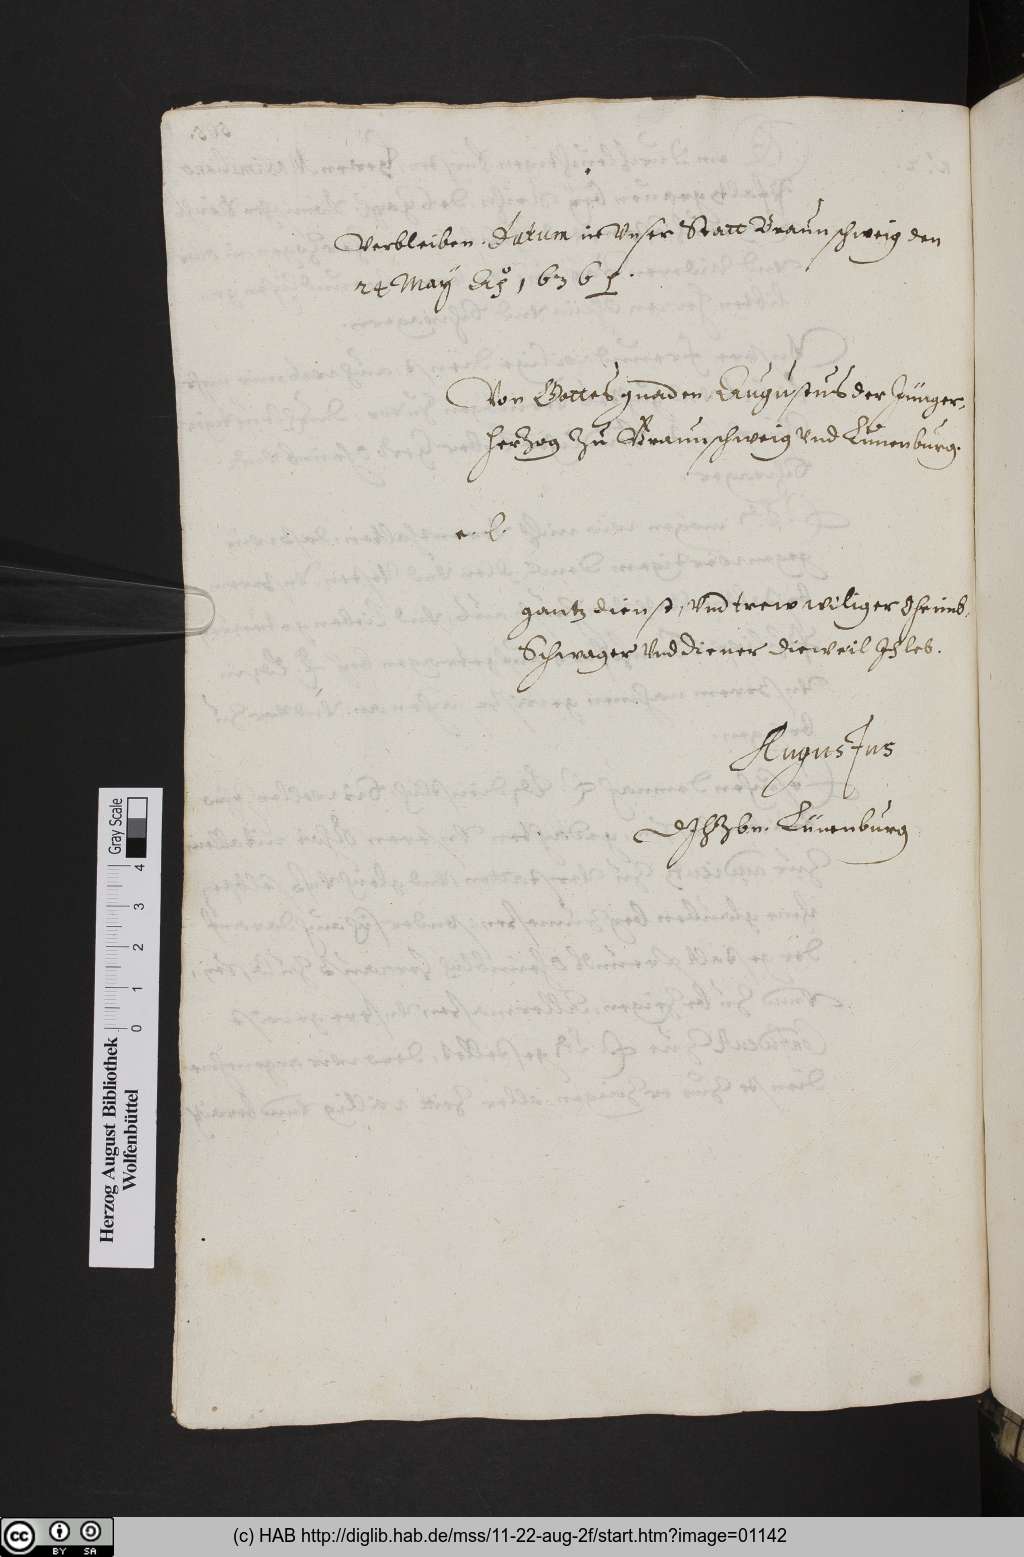 Verbleiben. Datum in Vnser Statt Braunschweig den
24 May
Von Gottes gnaden, Augustus der Jünger,
Herzog Zu Braunschweig Vnd Lünenburg.
e. l.
gantz dienst, Vnd trewwilliger Oheimb,
Schwager Vnd diener dieweil Ich leb.
Augustus
HzBr. Lünenburg
Herzog August Bibliothek
Wolfenbüttel
Gray Scale
0 1 2 3 4
cc BY SA
(c) HAB http://diglib.hab.de/mss/11-22-aug-2f/start.htm?image=01142